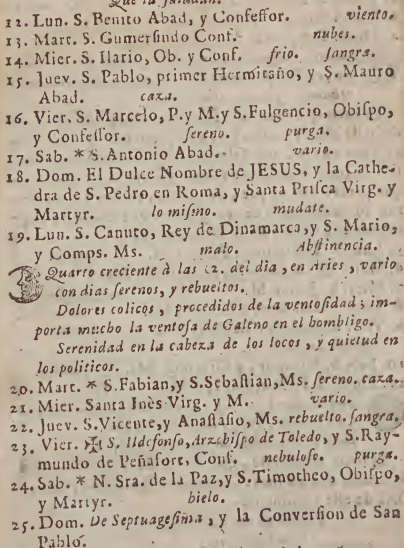 Que la
12. Lun. S. Benito Abad, y Confeſſor. viento.
13. Mart. S. Gumerſindo Conf. nubes.
14. Mier. S. Ilario, Ob. y Conf. frio. ſangra.
15. Juev. S. Pablo, primer Hermitaño, y S. Mauro
Abad. caza.
16. Vier. S. Marcelo, P. y M. y S. Fulgencio, Obiſpo,
y Confeſſor. ſereno. purga.
17. Sab. * S. Antonio Abad. vario.
18. Dom. El Dulce Nombre de JESUS, y la Cathe-
dra de S. Pedro en Roma, y Santa Priſca Virg. y
Martyr. lo miſmo. mudate.
19. Lun. S. Canuto, Rey de Dinamarca, y S. Mario,
y Comps. Ms. malo. Abſtinencia.
Quarto creciente à las 12. del dia, en Aries, vario
con dias ſerenos, y rebueltos.
Dolores colicos, procedidos de la ventoſidad; im-
porta mucho la ventoſa de Galeno en el hombligo.
Serenidad en la cabeza de los locos, y quietud en
los politicos.
20. Mart. * S. Fabian, y S. Sebaſtian, Ms. ſereno. caza.
21. Mier. Santa Inès Virg. y M. vario.
22. Juev. S. Vicente, y Anaſtaſio, Ms. rebuelto. ſangra.
23. Vier. ✠ S. Ildefonſo, Arzobiſpo de Toledo, y S. Ray-
mundo de Peñafort, Conf. nebuloſo. purga.
24. Sab. * N. Sra. de la Paz, y S. Timotheo, Obiſpo,
y Martyr. hielo.
25. Dom. De Septuageſima, y la Converſion de San
Pablo.